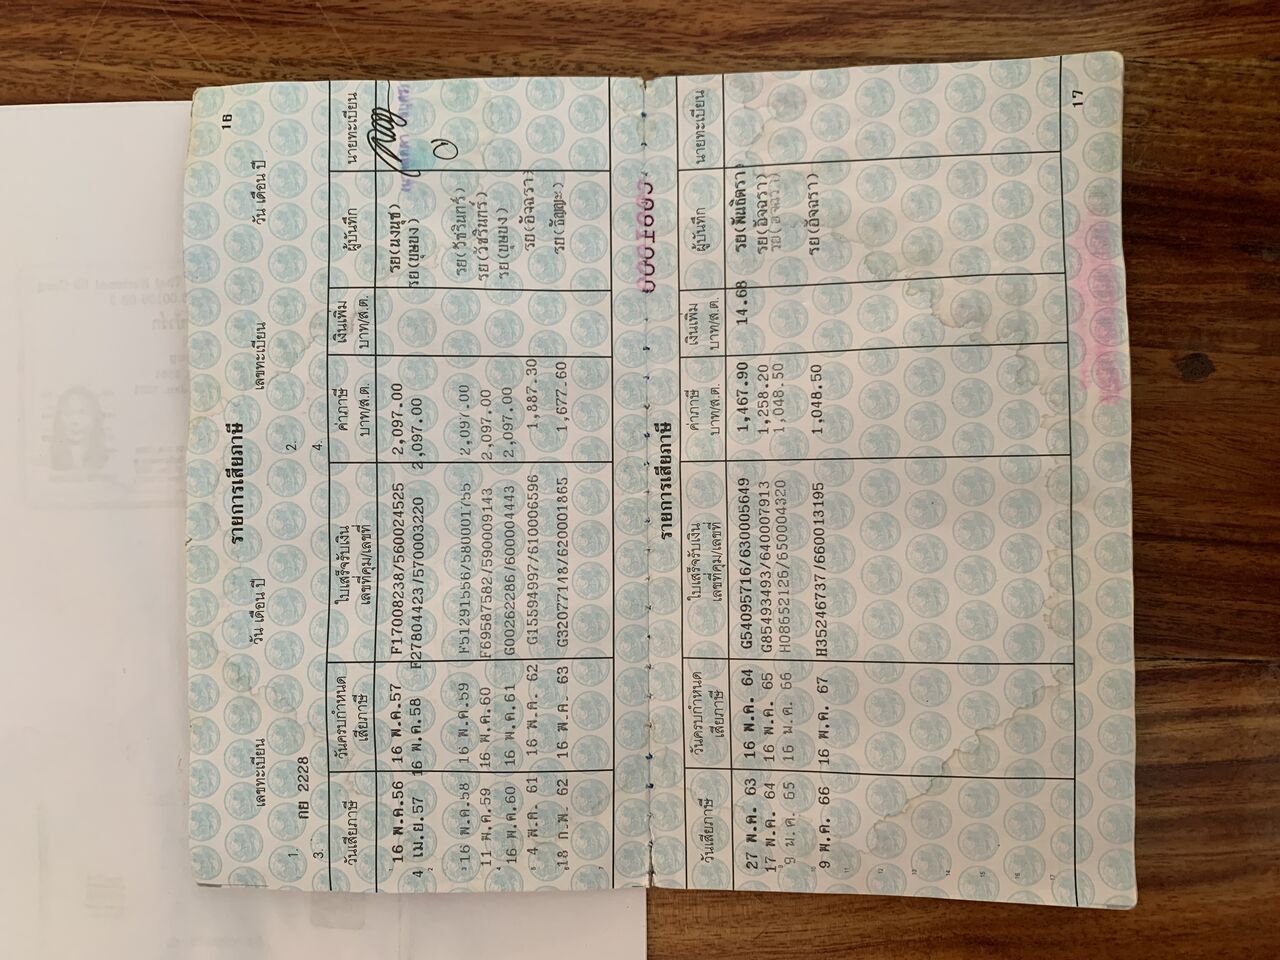 16
รายการเสียภาษี
เลขทะเบียน วัน เดือน ปี เลขทะเบียน วัน เดือน ปี
1. กย 2228 2.
3. 4.
วันเสียภาษี วันครบกำหนดเสียภาษี ใบเสร็จรับเงิน เลขที่คุม/เลขที่ ค่าภาษี บาท/ส.ต. เงินเพิ่ม บาท/ส.ต. ผู้บันทึก นายทะเบียน
16 พ.ค.56 16 พ.ค.57 F17008238/560024525 2,097.00 รย(นงนุช)
4 เม.ย.57 16 พ.ค.58 F27804423/570003220 2,097.00 รย(บุษยง)
16 พ.ค.58 16 พ.ค.59 F51291556/580001755 2,097.00 รย(วัชรินทร์)
11 พ.ค.59 16 พ.ค.60 F69587582/590009143 2,097.00 รย(วัชรินทร์)
16 พ.ค.60 16 พ.ค.61 G00262286/600004443 2,097.00 รย(บุษยง)
4 พ.ค. 61 16 พ.ค. 62 G15594997/610006596 1,887.30 รย(อัจฉรา)
18 ก.พ. 62 16 พ.ค. 63 G32077148/620001865 1,677.60
รายการเสียภาษี
วันเสียภาษี วันครบกำหนดเสียภาษี ใบเสร็จรับเงิน เลขที่คุม/เลขที่ ค่าภาษี บาท/ส.ต. เงินเพิ่ม บาท/ส.ต. ผู้บันทึก นายทะเบียน
27 พ.ค. 63 16 พ.ค. 64 G54095716/630005649 1,467.90 14.68 รย(พันธิตรา)
17 พ.ค. 64 16 พ.ค. 65 G85493493/640007913 1,258.20 รย(อัจฉรา)
9 ม.ค. 65 16 พ.ค. 66 H08652126/650004320 1,048.50 รย(อัจฉรา)
9 พ.ค. 66 16 พ.ค. 67 H35246737/660013195 1,048.50 รย(อัจฉรา)
17